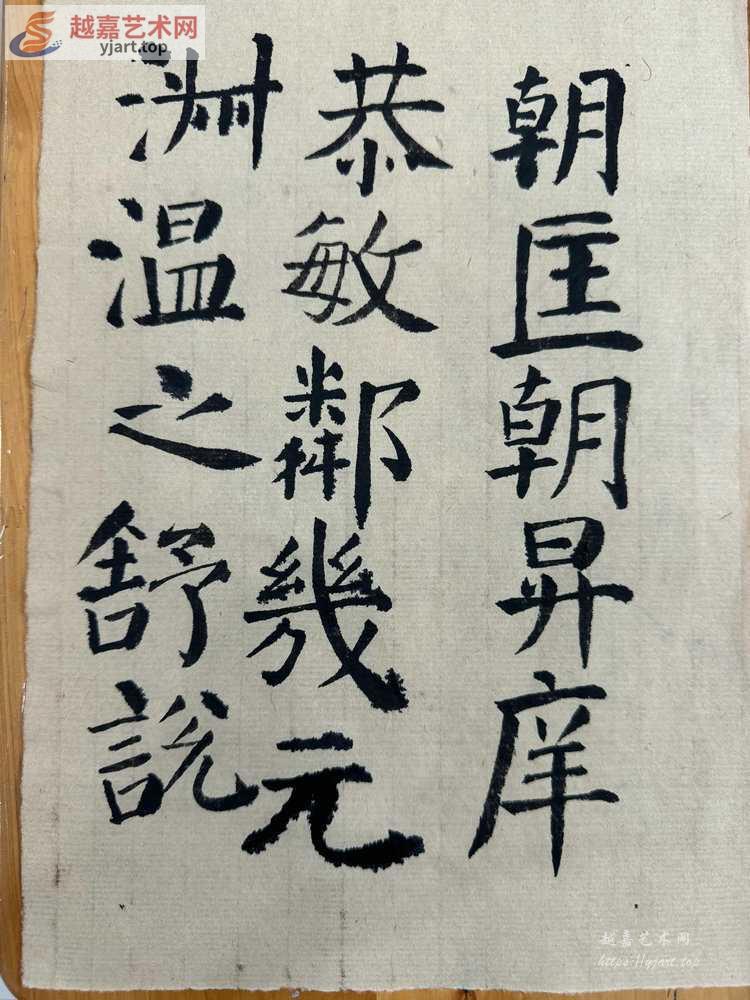 越嘉艺术网
yjart.top
朝匡朝昇庠
恭敏鄰幾元
淵溫之舒說
越嘉艺术网
https://yjart.top